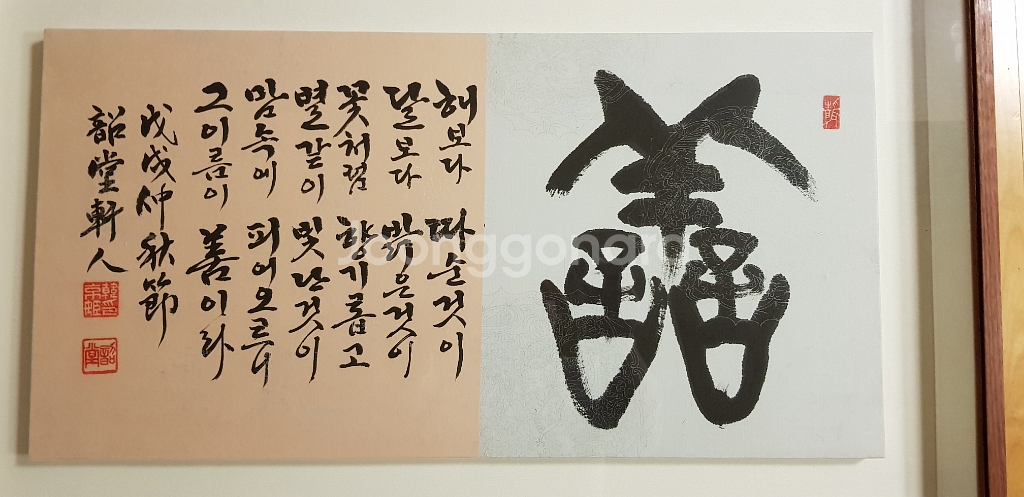 譱
해보다 따순것이
달보다 밝은것이
꽃처럼 향기롭고
별같이 빛난것이
맘속에 피어오르니
그이름이 善이라
戊戌仲秋節
韶堂軒人
韶堂
Joonggonara